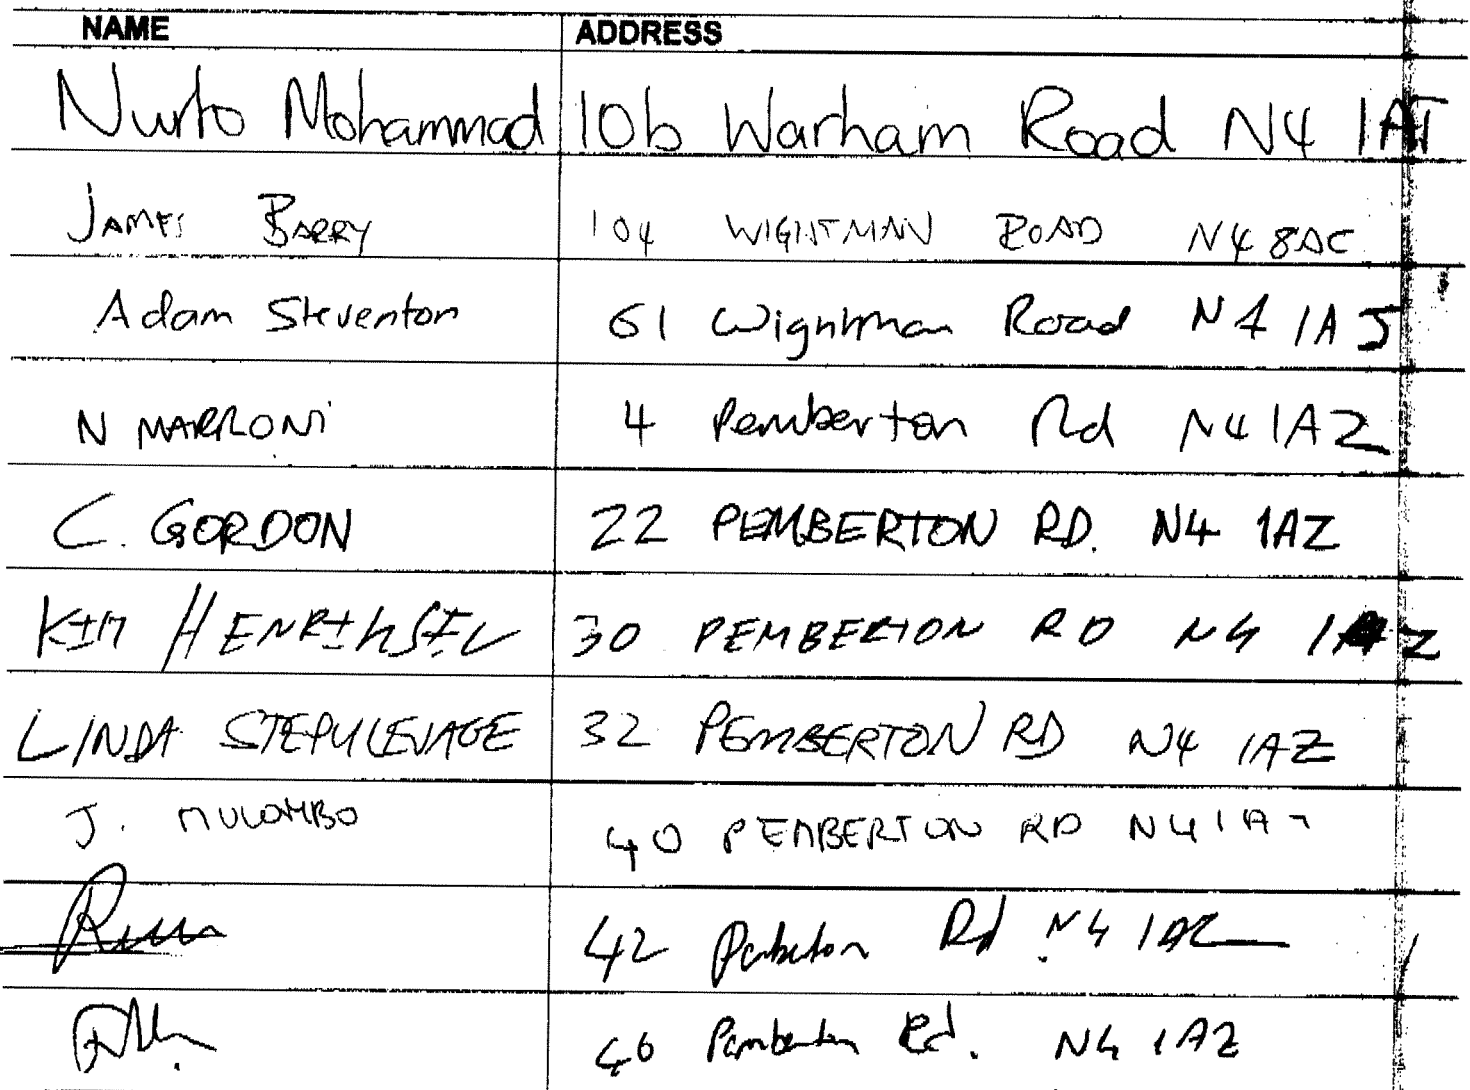 NAME ADDRESS
Nurto Mohammad 10b Warham Road N4 1AT
JAMES BARRY 104 WIGHTMAN ROAD N4 8AC
Adam Steventon 61 Wightman Road N4 1AJ
N MARRONI 4 Pemberton Rd N4 1AZ
C. GORDON 22 PEMBERTON RD. N4 1AZ
KIM 30 PEMBERTON RD N4 1AZ
LINDA STEPULEVAGE 32 PEMBERTON RD N4 1AZ
J. MULOMBO 40 PEMBERTON RD N4
42 Pemberton Rd N4 1AZ
46 Pemberton Rd. N4 1AZ